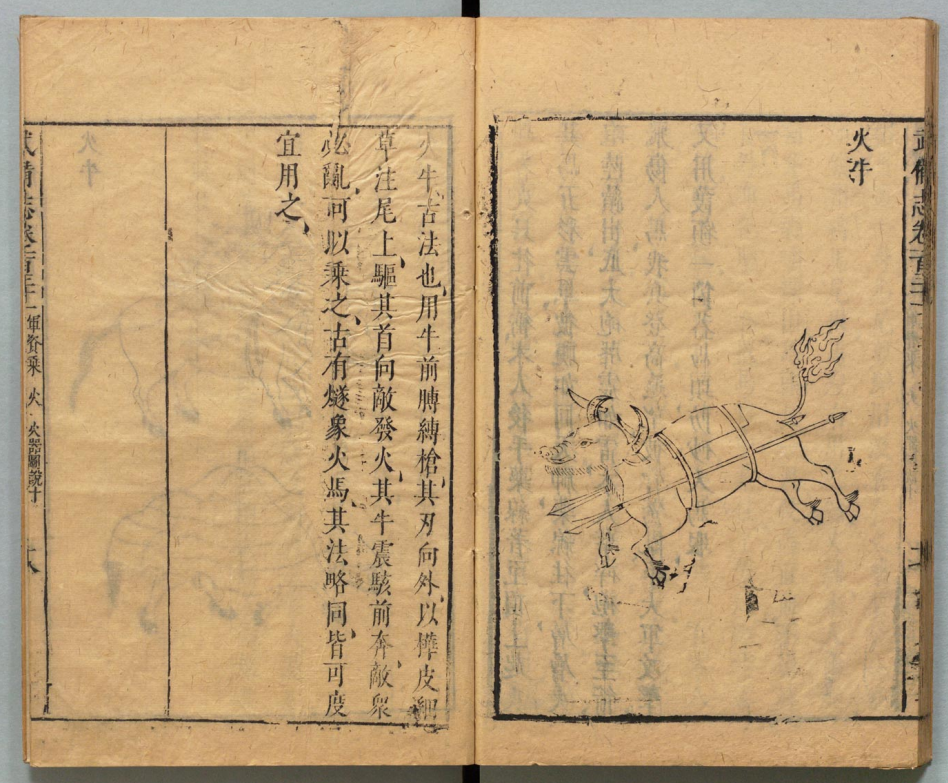 武備志卷一百三十一
火牛
火牛古法也用牛前膊縛槍其刃向外以樺皮細
草注尾上驅其首向敵發火其牛震駭前奔敵衆
必亂可以乘之古有燧象火馬其法略同皆可度
宜用之
武備志卷一百三十一 軍資乘 火 火器圖說十